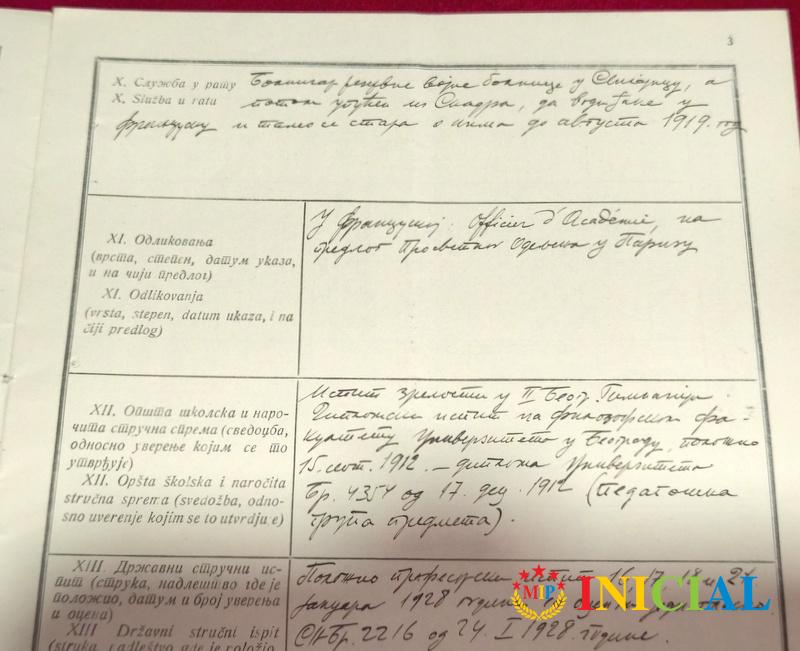 3
X. Служба у рату Болничар резервне војне болнице у а
X. Služba u ratu потом упућен из Скадра, да води ђаке у
Француску и тамо се стара о њима до августа 1919. год
XI. Одликовања
(врста, степен, датум указа,
и на чији предлог)
XI. Odlikovanja
(vrsta, stepen, datum ukaza, i na
čiji predlog)
У Француској: Officier d'Académie, на
предлог Просветног Одељења у Паризу
XII. Општа школска и наро-
чита стручна спрема (сведоџба,
односно уверење којим се то
утврђује)
XII. Opšta školska i naročita
stručna sprema (svedožba, odno-
sno uverenje kojim se to utvrdjuje)
Испит зрелости у II Беогр. Гимназији.
Дипломски испит на филозофском фа-
култету Универзитета у Београду, положио
15. септ. 1912. – диплома Универзитета
Бр. 4354 од 17. дец. 1912 (Педагошка
група предмета).
XIII. Државни стручни ис-
пит (струка, надлештво где је
положио, датум и број уверења
и оцена)
XIII Državni stručni ispit
(struka, nadleštvo gde je položio,
Положио професорски испит 16, 17, 18 и 24
јануара 1928 године
Бр. 2216 од 24. I 1928. године.
MIP INICIAL